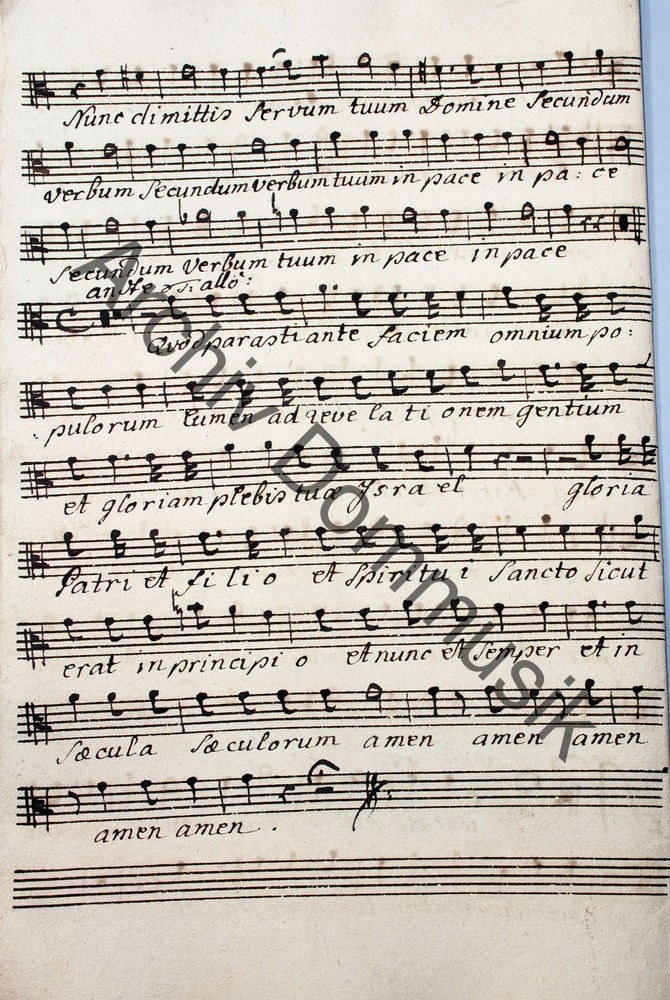 Nunc dimittis servum tuum Domine secundum
verbum secundum verbum tuum in pace in pa: ce
secundum verbum tuum in pace in pace
allo:
Quod parasti ante faciem omnium po:
pulorum lumen ad reve la ti onem gentium
et gloriam plebis tuæ Isra el gloria
Patri et fi li o et Spiritu i Sancto sicut
erat in principi o et nunc et semper et in
sæcula sæculorum amen amen amen
amen amen.
Archiv Dommusik